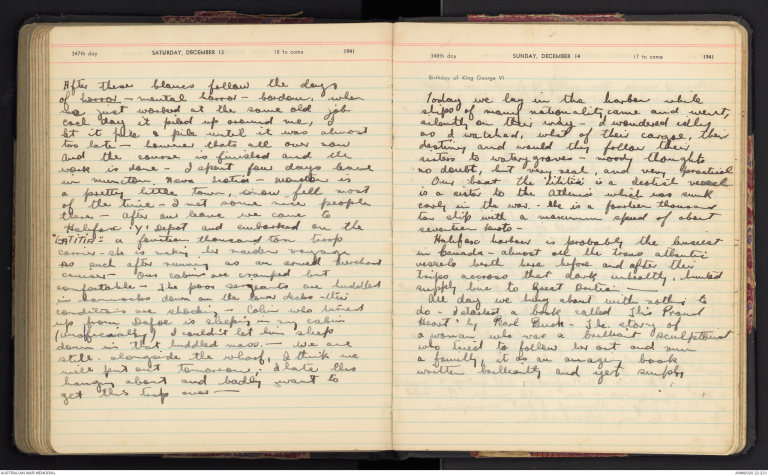 347th day SATURDAY, DECEMBER 13 18 to come 1941
After these blanks follow the days
of horror – mental horror – boredom, when
we just worked at the same old job
each day it piled up around me, I
let it pile a pile until it was almost
too late – however thats all over now
and the course is finished and the
work is done – I spent four days leave
in moncton Nova Scotia – moncton is
a pretty little town, snow fell most
of the time – I met some nice people
there – after our leave we came to
Halifax 'Y' Depot and embarked on the
"LATITIA" = a fourteen thousand ton troop
carrier – she is making her maiden voyage
as such after running as an armed merchant
cruiser – Our cabins are cramped but
comfortable – The poor sergeants are huddled
in hammocks down on the lower decks their
conditions are shocking – Colin who turned
up from Dafoe is sleeping in my cabin
(unofficially) I couldn't let him sleep
down in that huddled mass. – We are
still alongside the wharf, I think we
will put out tomorrow, I hate this
hanging about and badly want to
get this trip over –
348th day SUNDAY, DECEMBER 14 17 to come 1941
Birthday of King George VI
Today we lay in the harbor while
ships of many nationality came and went,
silently on their way – I wondered idly
as I watched, what of their cargoe, their
destiny and would they follow their
sisters to watery graves – moody thoughts
no doubt, but very real, and very practical
Our boat The 'Titia' is a Scotish vessel
is a sister to the Athenia which was sunk
early in the war. – She is a fourteen thousand
ton ship with a maximum speed of about
seventeen knots –
Halifax harbour is probably the busiest
in Canada – almost all the trans atlantic
vessels berth here before and after their
trips accross that dark unhealthy, hunted
supply line to Great Britain –
All day we hung about with nothing to
do – I started a book called 'This Proud
Heart' by Pearl Buck – The story of
a woman who was a brilliant sculptouist
who tried to follow her art and run
a family, it is an amazing book
written brilliantly and yet simply
AUSTRALIAN WAR MEMORIAL